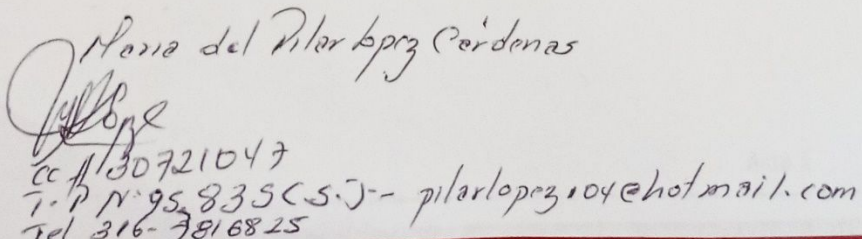 Maria del Pilar lopez Cárdenas
CC # 30721047
T.P N. 95.835 CS.J-- pilarlopez104@hotmail.com
Tel 316-7816825